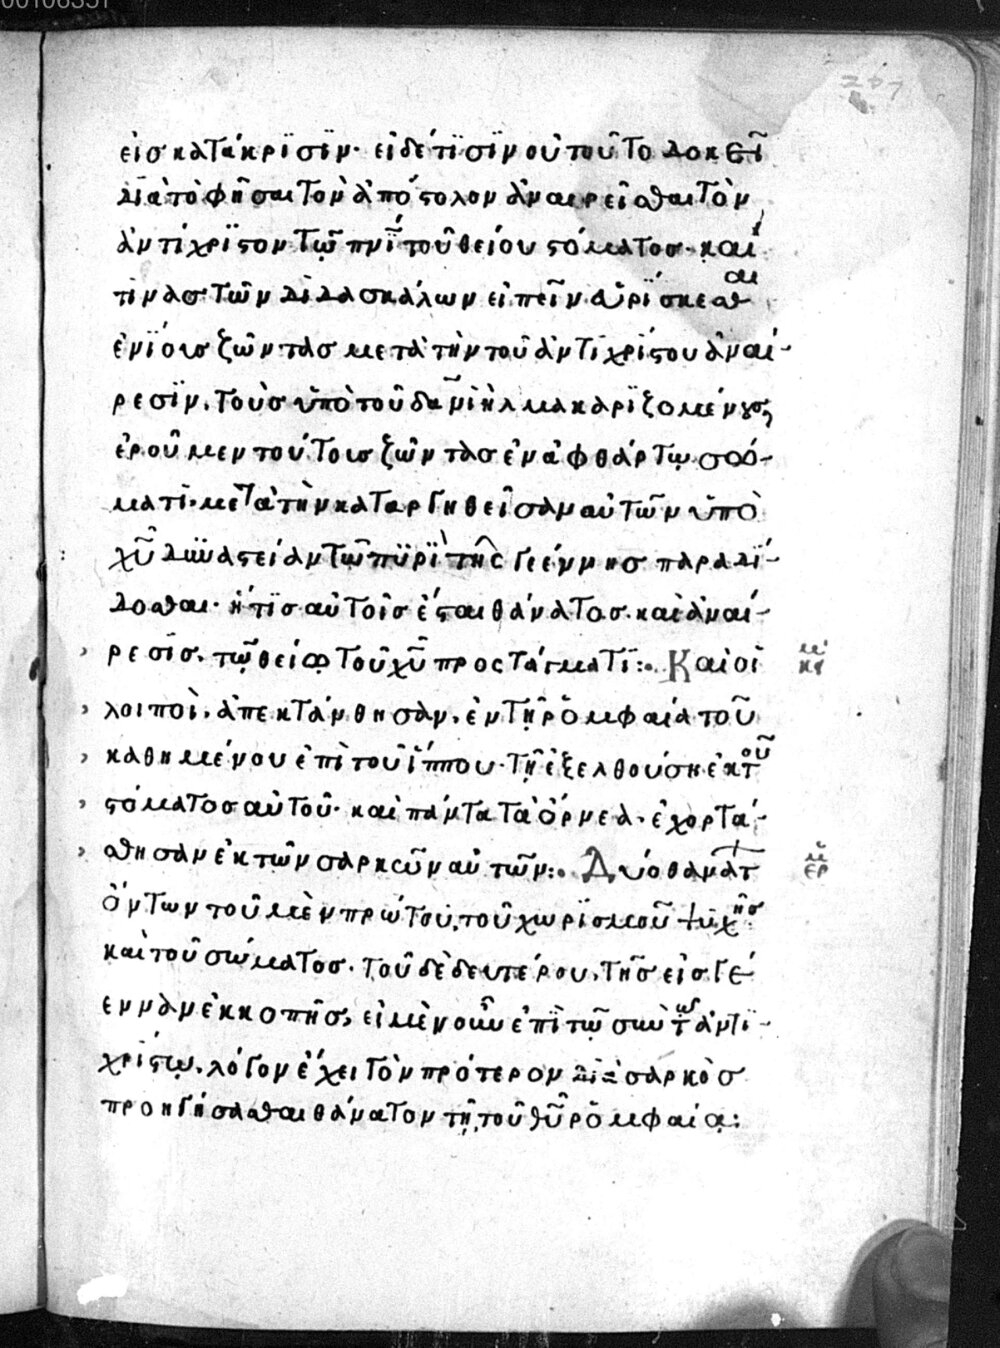 εἰσ κατάκρϊσϊν· εἰ δέ τϊσϊν οὐ τοῦτο δοκεῖ
διὰ τὸ φῆσαι τὸν ἀπόστολον ἀναιρεῖσθαι τὸν
ἀντίχρϊστον τῶ πνϊ τοῦ θείου στόματος· καί
τινασ τῶν διδασκάλων εἰπεῖν εὑρϊσκεσθαι
ἐνϊοισ ζῶντασ μετὰ τὴν τοῦ ἀντιχρίστου ἀναί-
ρεσϊν, τοὺσ ὑπὸ τοῦ δανιὴλ μακαρϊζομένους,
ἐροῦμεν τούτοισ ζῶντασ ἐν ἀφθάρτω σώ-
ματι· μετὰ τὴν καταργηθεῖσαν αὐτῶν ὑπὸ
χῦ δυναστείαν τῶ πϋρϊ τῆς γεέννησ παραδί-
δοσθαι· ἥτϊσ αὐτοῖσ ἔσται θάνατοσ· καὶ ἀναί-
ρεσϊσ, τῶ θείω τοῦ χῦ προστάγματϊ:· Καὶ οἱ
λοιποὶ, ἀπεκτάνθησαν, ἐν τῇ ῥομφαία τοῦ
καθημένου ἐπὶ τοῦ ἵππου· τῇ ἐξελθούση ἐκ τοῦ
στόματοσ αὐτοῦ· καὶ πάντα τὰ ὄρνεα, ἐχορτά-
σθησαν ἐκ τῶν σαρκῶν αὐτῶν:· Δύο θανάτ
ὄντων τοῦ μὲν πρώτου, τοῦ χωρϊσμοῦ ψυχῆσ
καὶ τοῦ σώματοσ· τοῦ δὲ δευτέρου, τῆσ εἰσ γέ
ενναν ἐκκοπῆσ, εἰ μὲν οὖν ἐπὶ τῶ σὺν τῶ ἀντϊ-
χρίστω, λόγον ἔχει τὸν πρότερον διὰ σαρκὸσ
προηγήσασθαι θάνατον τῇ τοῦ θῦ ῥομφαία:
κει
ερ
267